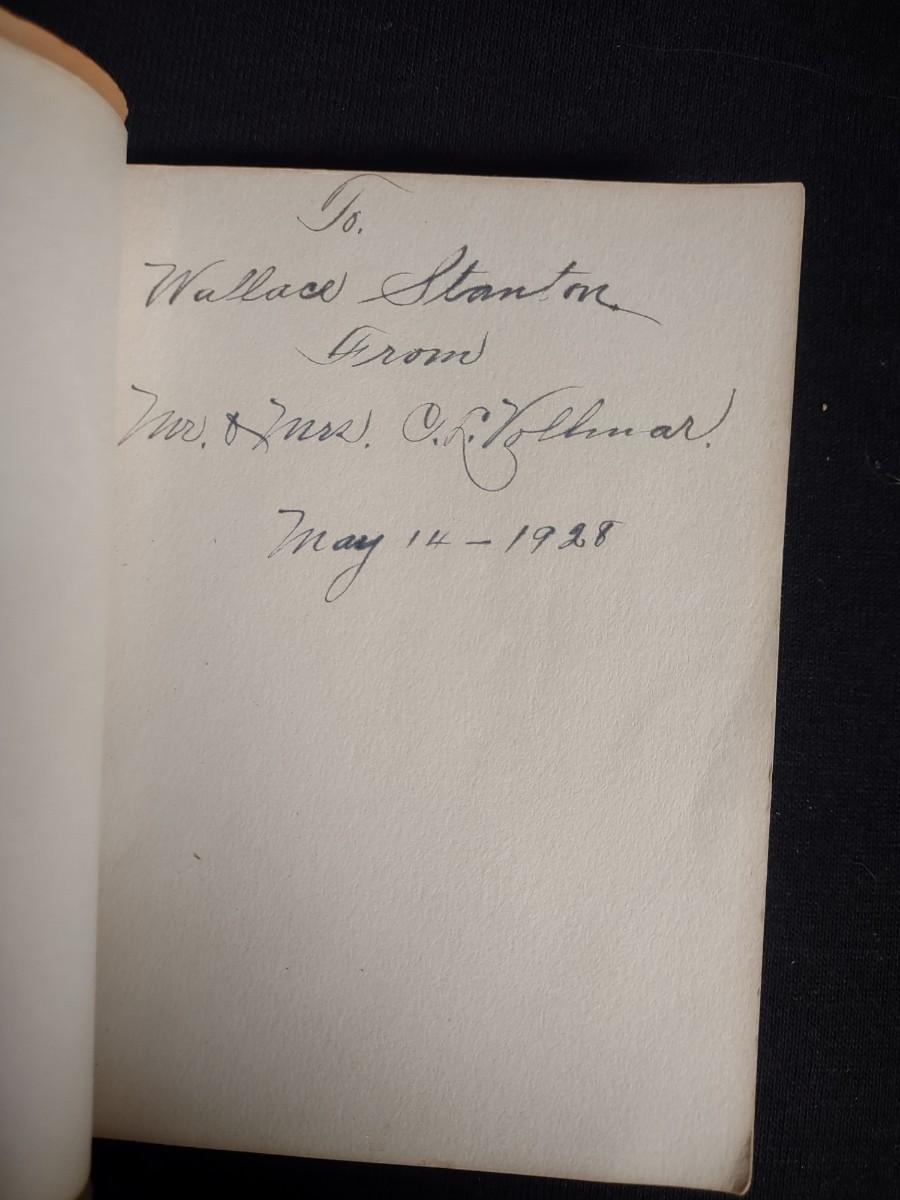 To.
Wallace Stanton.
From
Mr. & Mrs. C. L. Vollmar.
May 14 – 1928